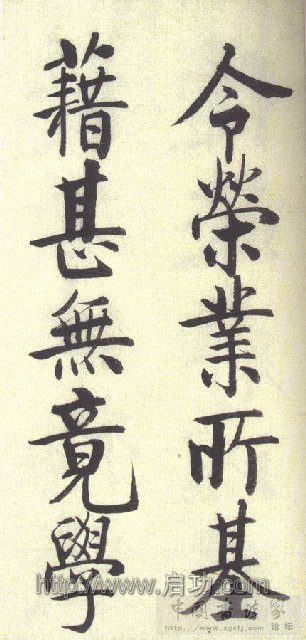 令榮業所基
藉甚無竟學
http://www.启功.com
中国书法家论坛
http://www.zgsfj.com